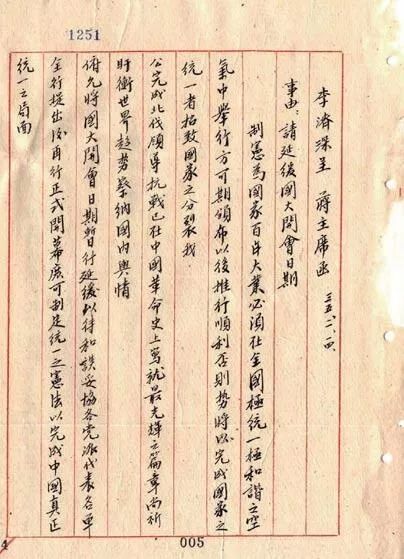 1251
李濟深呈 蔣主席函
事由:請延緩國大開會日期
制憲為國家百年大業必須在全國極統一極和諧之空
氣中舉行方可期頒布以後推行順利否則勢將以完成國家之
統一者招致國家之分裂我
公完成北伐領導抗戰已在中國革命史上寫就最光輝之篇章尚祈
盱衡世界趨勢察納國內輿情
俯允將國大開會日期暫行延緩以待和談妥協各党派代表名單
全行提出後再行正式開幕庶可制定統一之憲法以完成中國真正
統一之局面
4
005